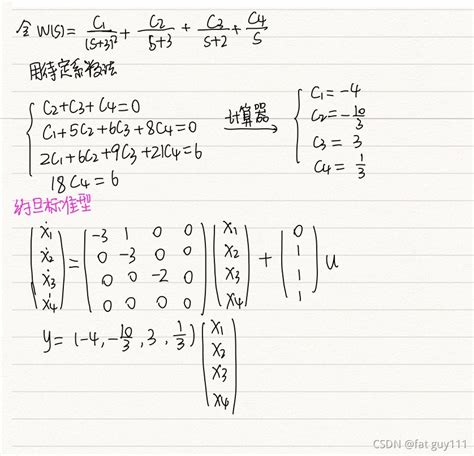 令 W(S) = C₁/(S+3)² + C₂/(S+3) + C₃/(S+2) + C₄/S
用待定系数法
{ C₂+C₃+C₄=0
C₁+5C₂+6C₃+8C₄=0
2C₁+6C₂+9C₃+21C₄=6
18C₄=6
计算器 →
{ C₁=-4
C₂=-10/3
C₃=3
C₄=1/3
约旦标准型
(ẋ₁ ẋ₂ ẋ₃ ẋ₄) = (-3 1 0 0; 0 -3 0 0; 0 0 -2 0; 0 0 0 0) (x₁ x₂ x₃ x₄) + (0 1 1 1) u
y = (-4, -10/3, 3, 1/3) (x₁ x₂ x₃ x₄)
CSDN @fat guy111